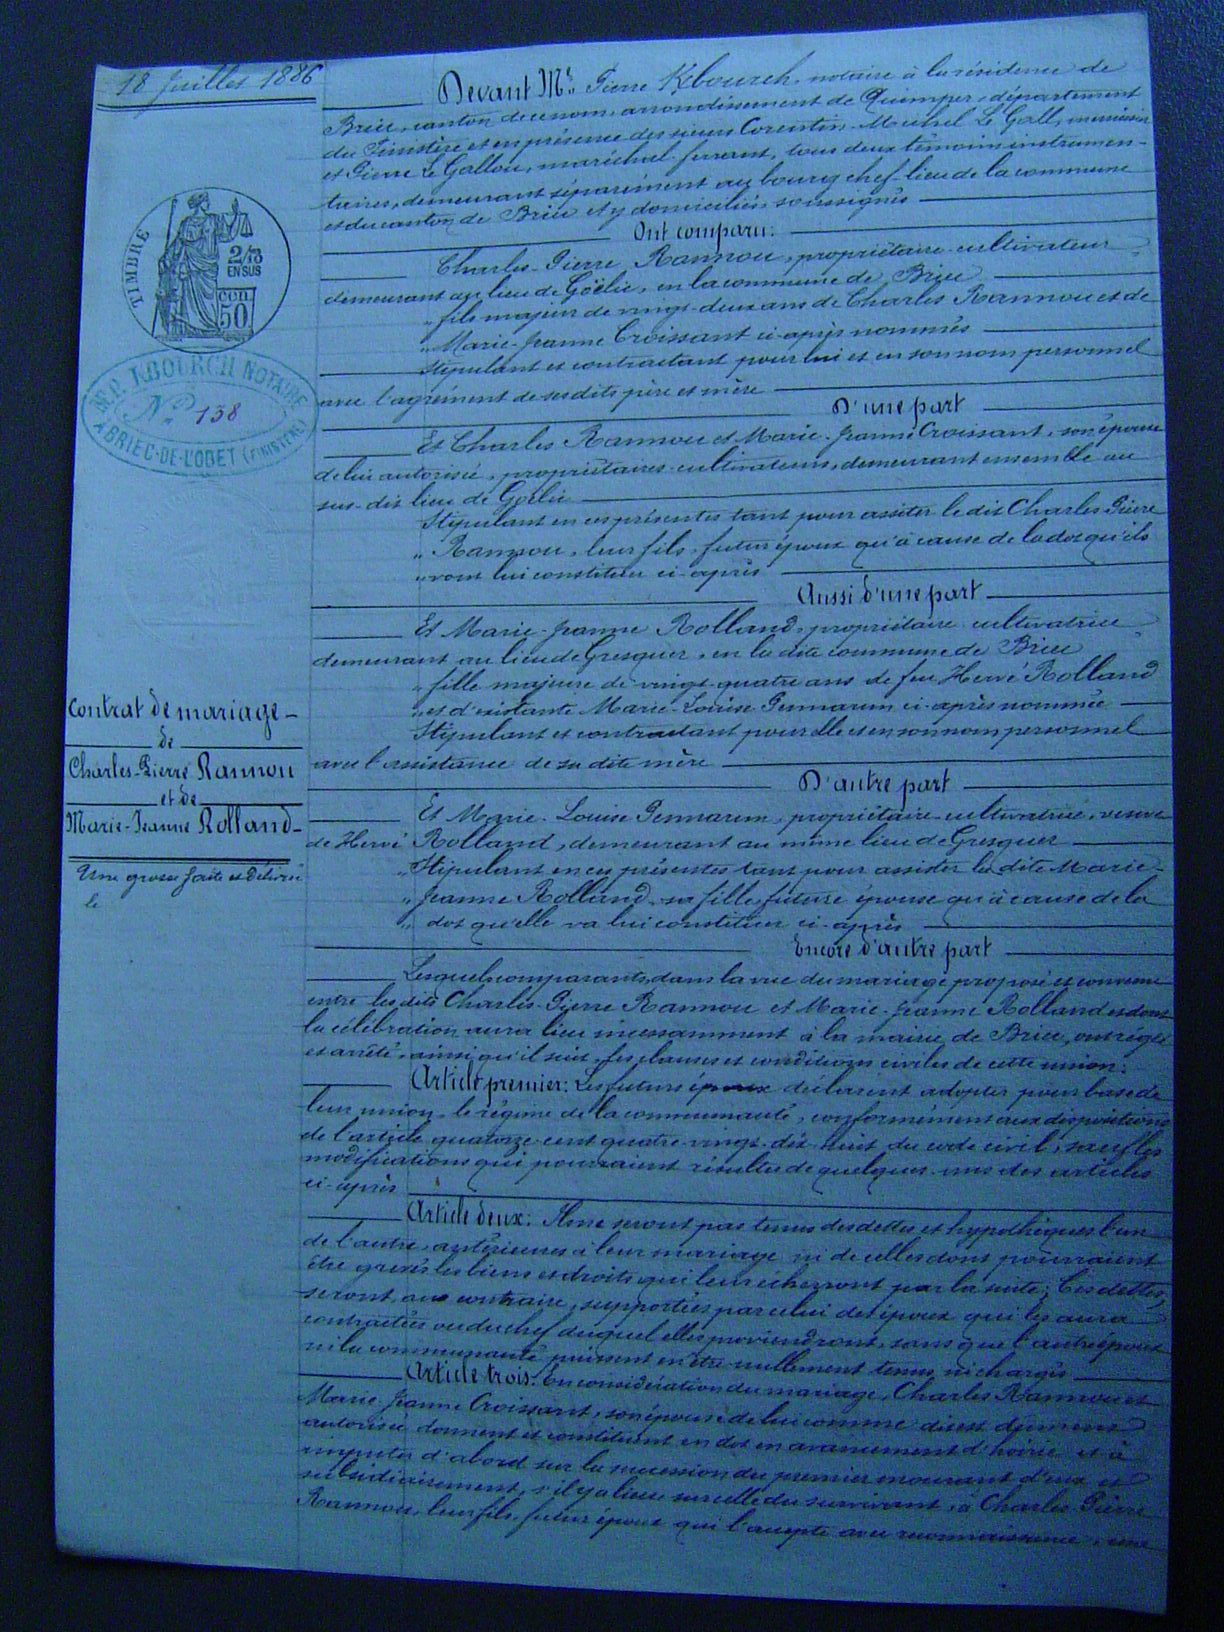 18 Juillet 1886
TIMBRE
2/10
EN SUS
cen.
50
M.P. KBOURCH NOTAIRE
No 138
A BRIEC-DE-L'ODET (FINISTERE)
Contrat de mariage -
de
Charles-Pierre Rannou
et de
Marie-Jeanne Rolland -
Une grosse faite et délivrée
le
Devant Me Pierre Kbourch, notaire à la résidence de
Briec, canton de ce nom, arrondissement de Quimper, département
du Finistère et en présence des sieurs Corentin-Michel Le Gall, menuisier
et Pierre Le Gallou, maréchal ferrant, tous deux témoins instrumen-
taires, demeurant séparément au bourg chef-lieu de la commune
et du canton de Briec et y domiciliés, soussignés
Ont comparu:
Charles-Pierre Rannou, propriétaire-cultivateur
demeurant au lieu de, en la commune de Briec
" fils majeur de vingt-deux ans de Charles Rannou et de
" Marie-Jeanne Croissant ci-après nommés
Stipulant et contractant pour lui et en son nom personnel
avec l'agrément de ses dits père et mère
D'une part
Et Charles Rannou et Marie-Jeanne Croissant, son épouse
de lui autorisée, propriétaires-cultivateurs, demeurant ensemble au
sus-dit lieu de
Stipulant en ces présentes tant pour assister le dit Charles-Pierre
" Rannou, leur fils, futur époux qu'à cause de la dot qu'ils
" vont lui constituer ci-après
Aussi d'une part
Et Marie-Jeanne Rolland, propriétaire-cultivatrice
demeurant au lieu de Gresquer, en la dite commune de Briec
" fille majeure de vingt-quatre ans de feu Hervé Rolland
" et d'existante Marie-Louise Pennarun ci-après nommée
Stipulant et contractant pour elle et en son nom personnel
avec l'assistance de sa dite mère
D'autre part
Et Marie-Louise Pennarun, propriétaire-cultivatrice, veuve
de Hervé Rolland, demeurant au même lieu de Gresquer
" Stipulant en ces présentes tant pour assister la dite Marie-
" Jeanne Rolland, sa fille, future épouse qu'à cause de la
" dot qu'elle va lui constituer ci-après
Encore d'autre part
Lesquels comparants, dans la vue du mariage proposé et convenu
entre les dits Charles-Pierre Rannou et Marie-Jeanne Rolland et dont
la célébration aura lieu incessamment à la mairie de Briec, ont réglé
et arrêté, ainsi qu'il suit, les clauses et conditions civiles de cette union:
Article premier: Les futurs époux déclarent adopter pour base de
leur union, le régime de la communauté, conformément aux dispositions
de l'article quatorze cent quatre-vingt-dix-huit du code civil, sauf les
modifications qui pourraient résulter de quelques-uns des articles
ci-après
Article deux: Ils ne seront pas tenus des dettes et hypothèques l'un
de l'autre, antérieures à leur mariage ni de celles dont pourraient
être grevés les biens et droits qui leur écherront par la suite; Ces dettes,
seront, au contraire, supportées par celui des époux qui les aura
contractées ou du chef duquel elles proviendront, sans que l'autre époux
ni la communauté puissent en être nullement tenus ni chargés
Article trois: En considération du mariage, Charles Rannou et
Marie-Jeanne Croissant, son épouse de lui comme dit est dûment
autorisée, donnent et constituent en dot en avancement d'hoirie et à
imputer d'abord sur la succession du premier mourant d'eux et
subsidiairement, s'il y a lieu sur celle du survivant, à Charles-Pierre
Rannou, leur fils, futur époux qui l'accepte avec reconnaissance, une